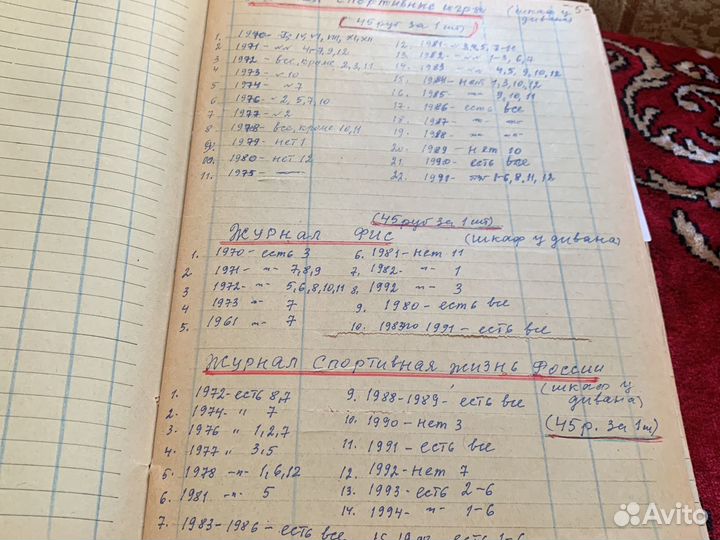 Спортивные игры (шкаф у дивана) -5-
45 руб за 1 шт
1. 1970-
2 1971 - №№ 4-7, 9, 12
3 1972 - все, кроме 2, 3, 11
4 1973 - № 10
5 1974 - № 7
6 1976 - № 2, 5, 7, 10
7 1977 - № 2
8 1978 - все, кроме 10, 11
9 1979 - нет 1
10. 1980 - нет 12
11. 1975 -
12. 1981 - 7-11
13. 1982 - 1-3, 6, 7
14. 1983 4, 5, 9, 10, 12
15. 1984 - нет 1, 3, 10, 12
16. 1985 - -"- 9, 10, 11
17. 1986 - есть все
18. 1987 -"- -"-
19. 1988 -"- -"-
20. 1989 - нет 10
21. 1990 - есть все
22. 1991 - 1-6, 8, 11, 12
(45 руб за 1 шт)
Журнал ФИС (шкаф у дивана)
1. 1970 - есть 3
2 1971 -"- 7, 8, 9
3 1972 -"- 5, 6, 8, 10, 11
4 1973 -"- 7
5. 1961 -"- 7
6. 1981 - нет 11
7. 1982 -"- 1
8. 1992 -"- 3
9. 1980 - есть все
10. 1991 - есть все
Журнал Спортивная жизнь России
(шкаф у дивана)
(45 р. за 1 шт)
1. 1972 - есть 8, 7
2. 1974 - " 7
3. 1976 " 1, 2, 7
4. 1977 " 3, 5
5. 1978 -"- 1, 6, 12
6. 1981 -"- 5
7. 1983-1986 - есть все
9. 1988-1989 - есть все
10. 1990 - нет 3
11. 1991 - есть все
12. 1992 - нет 7
13. 1993 - есть 2-6
14. 1994 -"- 1-6
Avito